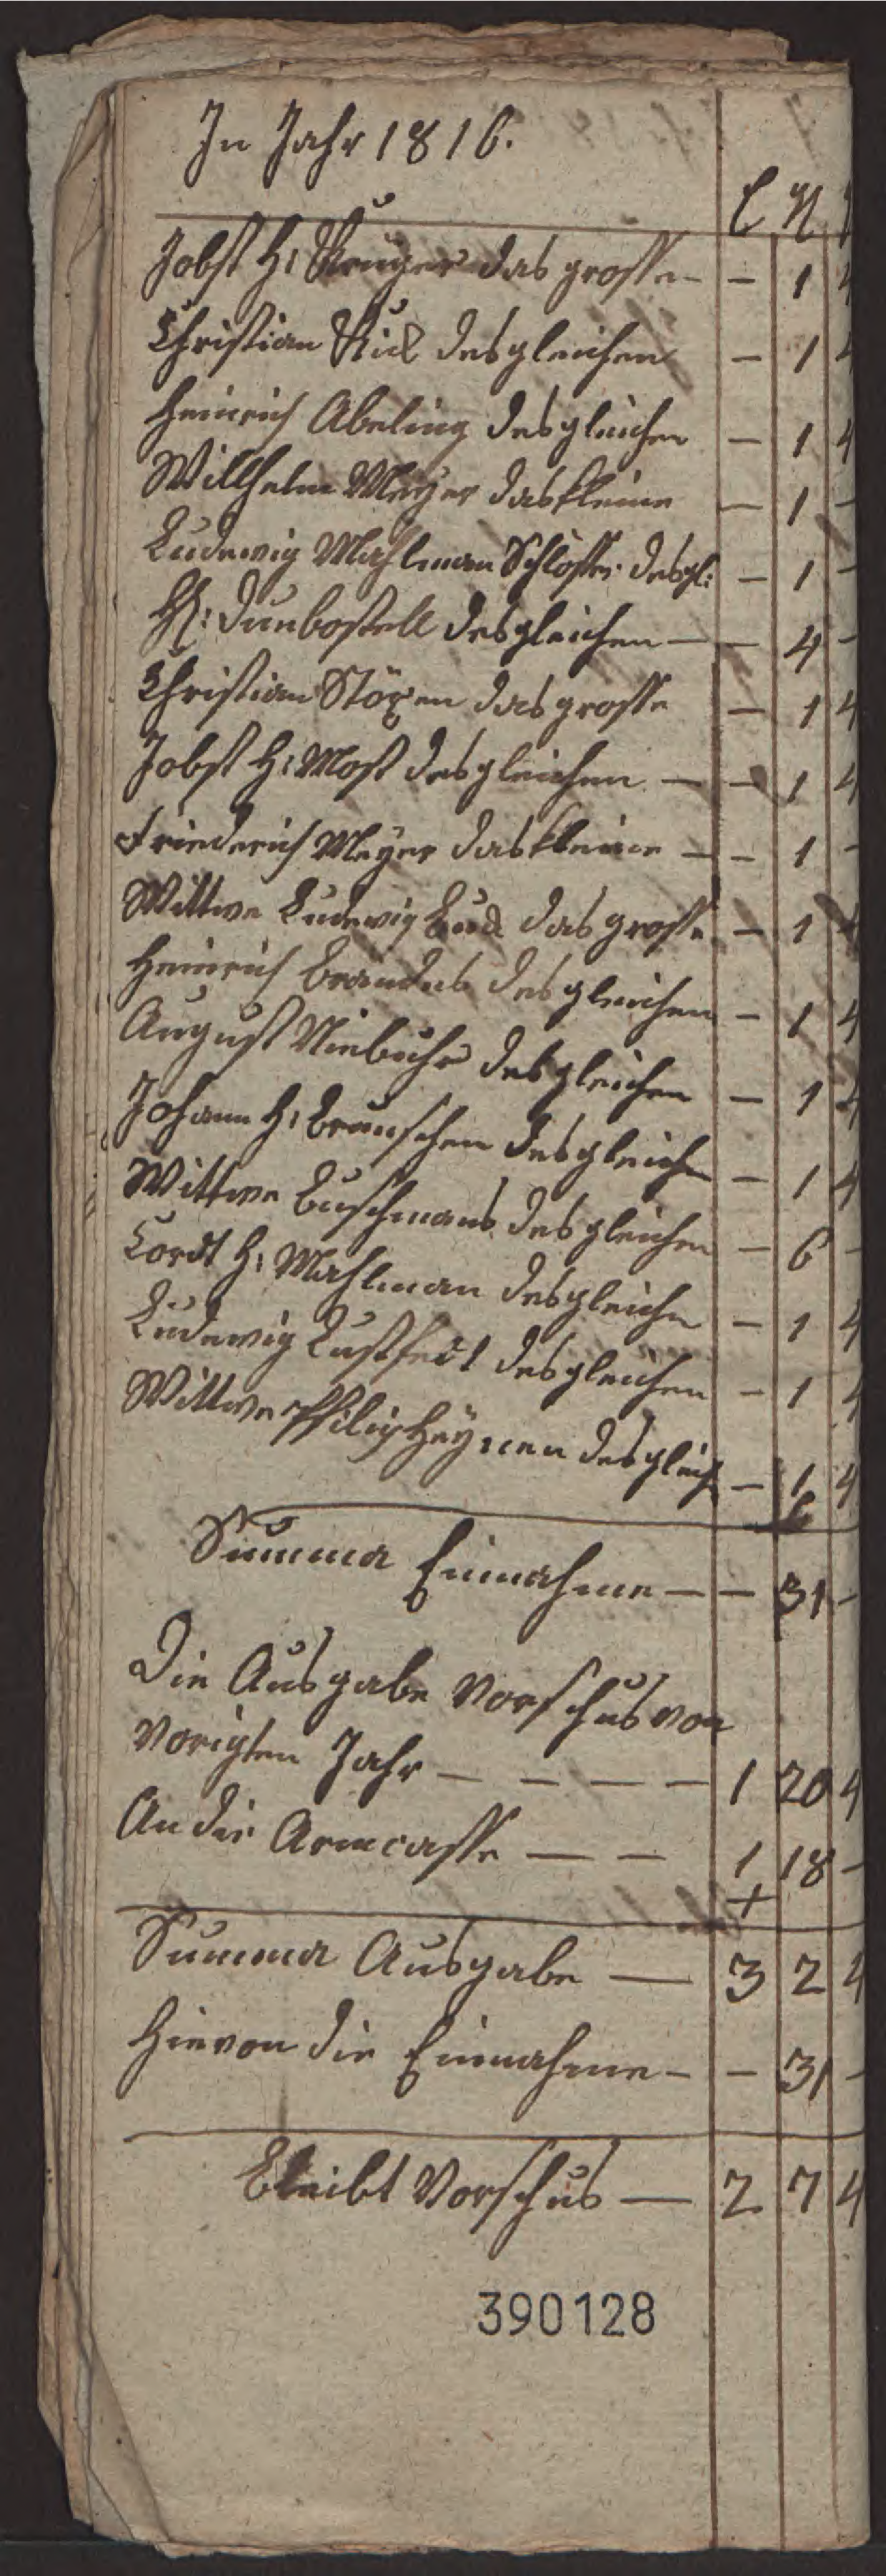 In Jahr 1816.
Jobst H: Kruger das grosse - - 1 4
Christian Kück desgleichen - 1 4
Heinrich Abeling desgleichen - 1 4
Willhelm Meyer das kleine - 1 -
Ludewig Mahlman Schlösser desgl: - 1 -
H: Dunbostell desgleichen - - 4 -
Christian Stözen das grosse - 1 4
Jobst H: Most desgleichen - - 1 4
Friederich Meyer das kleine - - 1 -
Wittwe Ludewig das grosse - 1 4
Heinrich Brandes desgleichen - 1 4
August Niebuhr desgleichen - 1 4
Johann H: Brunschen desgleichen - 1 4
Wittwe Buschmans desgleichen - 6 -
Cordt H: Mahlman desgleichen - 1 4
Ludewig Lustfeldt desgleichen - 1 4
Wittwe Philip Heynen desgleich - 1 4
Summa Einnahme - - 31 -
Die Ausgabe Vorschus von
Vorigten Jahr - - - - 1 20 4
An die Armcasse - - 1 18 -
Summa Ausgabe - 3 2 4
Hievon die Einnahme - - 31 -
Bleibt Vorschus - 2 7 4
390128